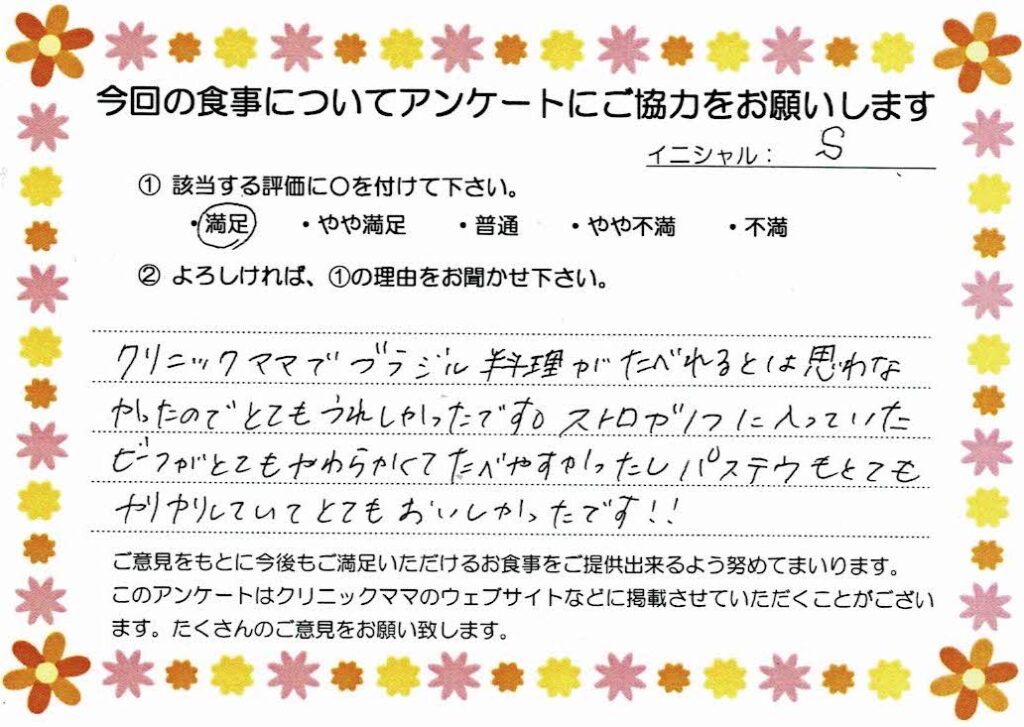 今回の食事についてアンケートにご協力をお願いします
イニシャル： S
① 該当する評価に〇を付けて下さい。
・満足 ・やや満足 ・普通 ・やや不満 ・不満
② よろしければ、①の理由をお聞かせ下さい。
クリニックママでブラジル料理がたべれるとは思わな
かったのでとてもうれしかったです。ストロガノフに入っていた
ビーフがとてもやわらかくてたべやすかったしパステウもとても
カリカリしていてとてもおいしかったです!!
ご意見をもとに今後もご満足いただけるお食事をご提供出来るよう努めてまいります。
このアンケートはクリニックママのウェブサイトなどに掲載させていただくことがござい
ます。たくさんのご意見をお願い致します。